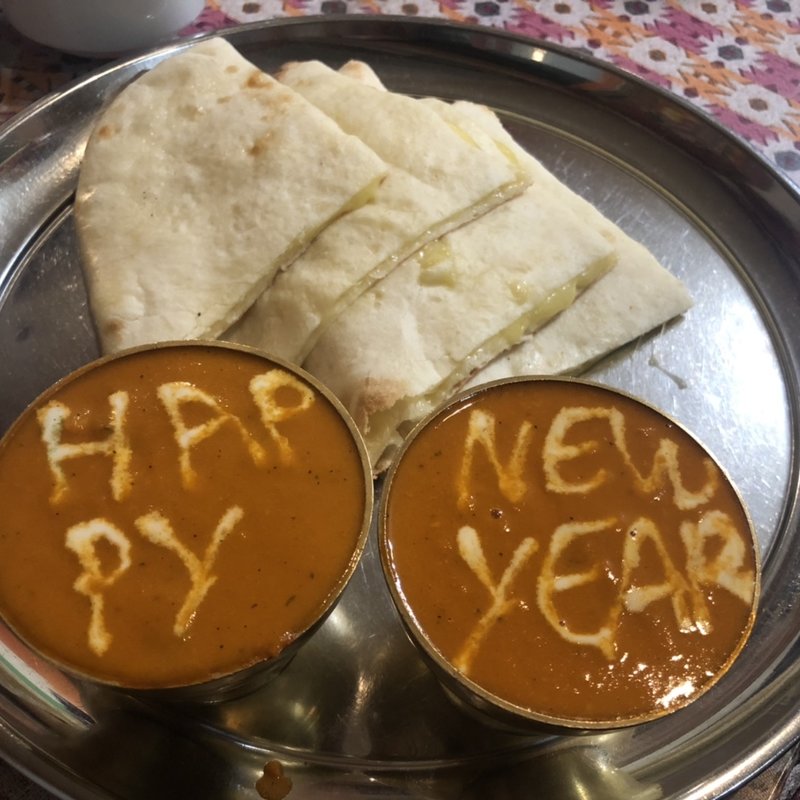 HAP
PY
NEW
YEAR